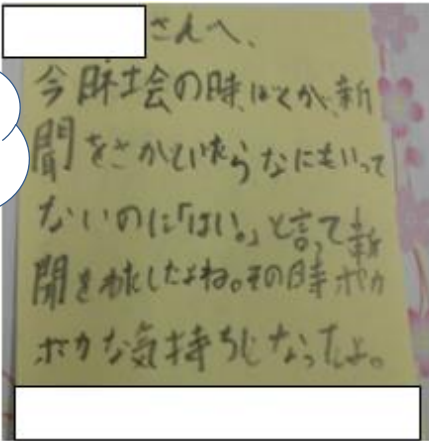 さんへ、
今 会の時、ぼくが、新
聞をさがといたらなにもいって
ないのに「はい。」と言って新
聞を したよね。その時ポカ
ポカな気持ちになったよ。